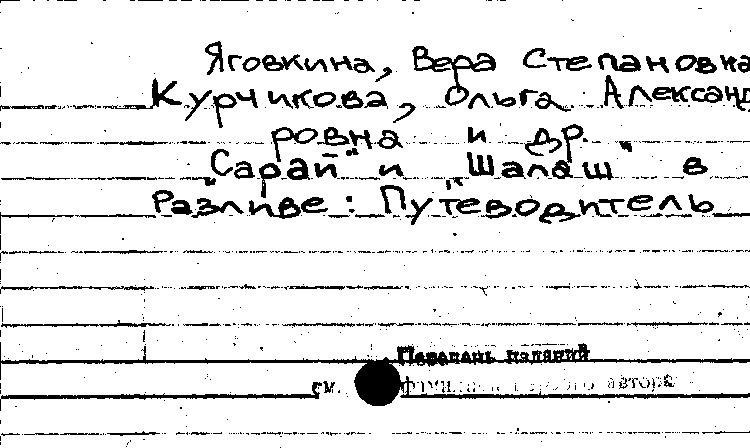 Яговкина, Вера Степановна
Курчикова, Ольга Александ
ровна и др.
"Сарай" и "Шалаш" в
Разливе: Путеводитель
Перечень изданий
см. автора